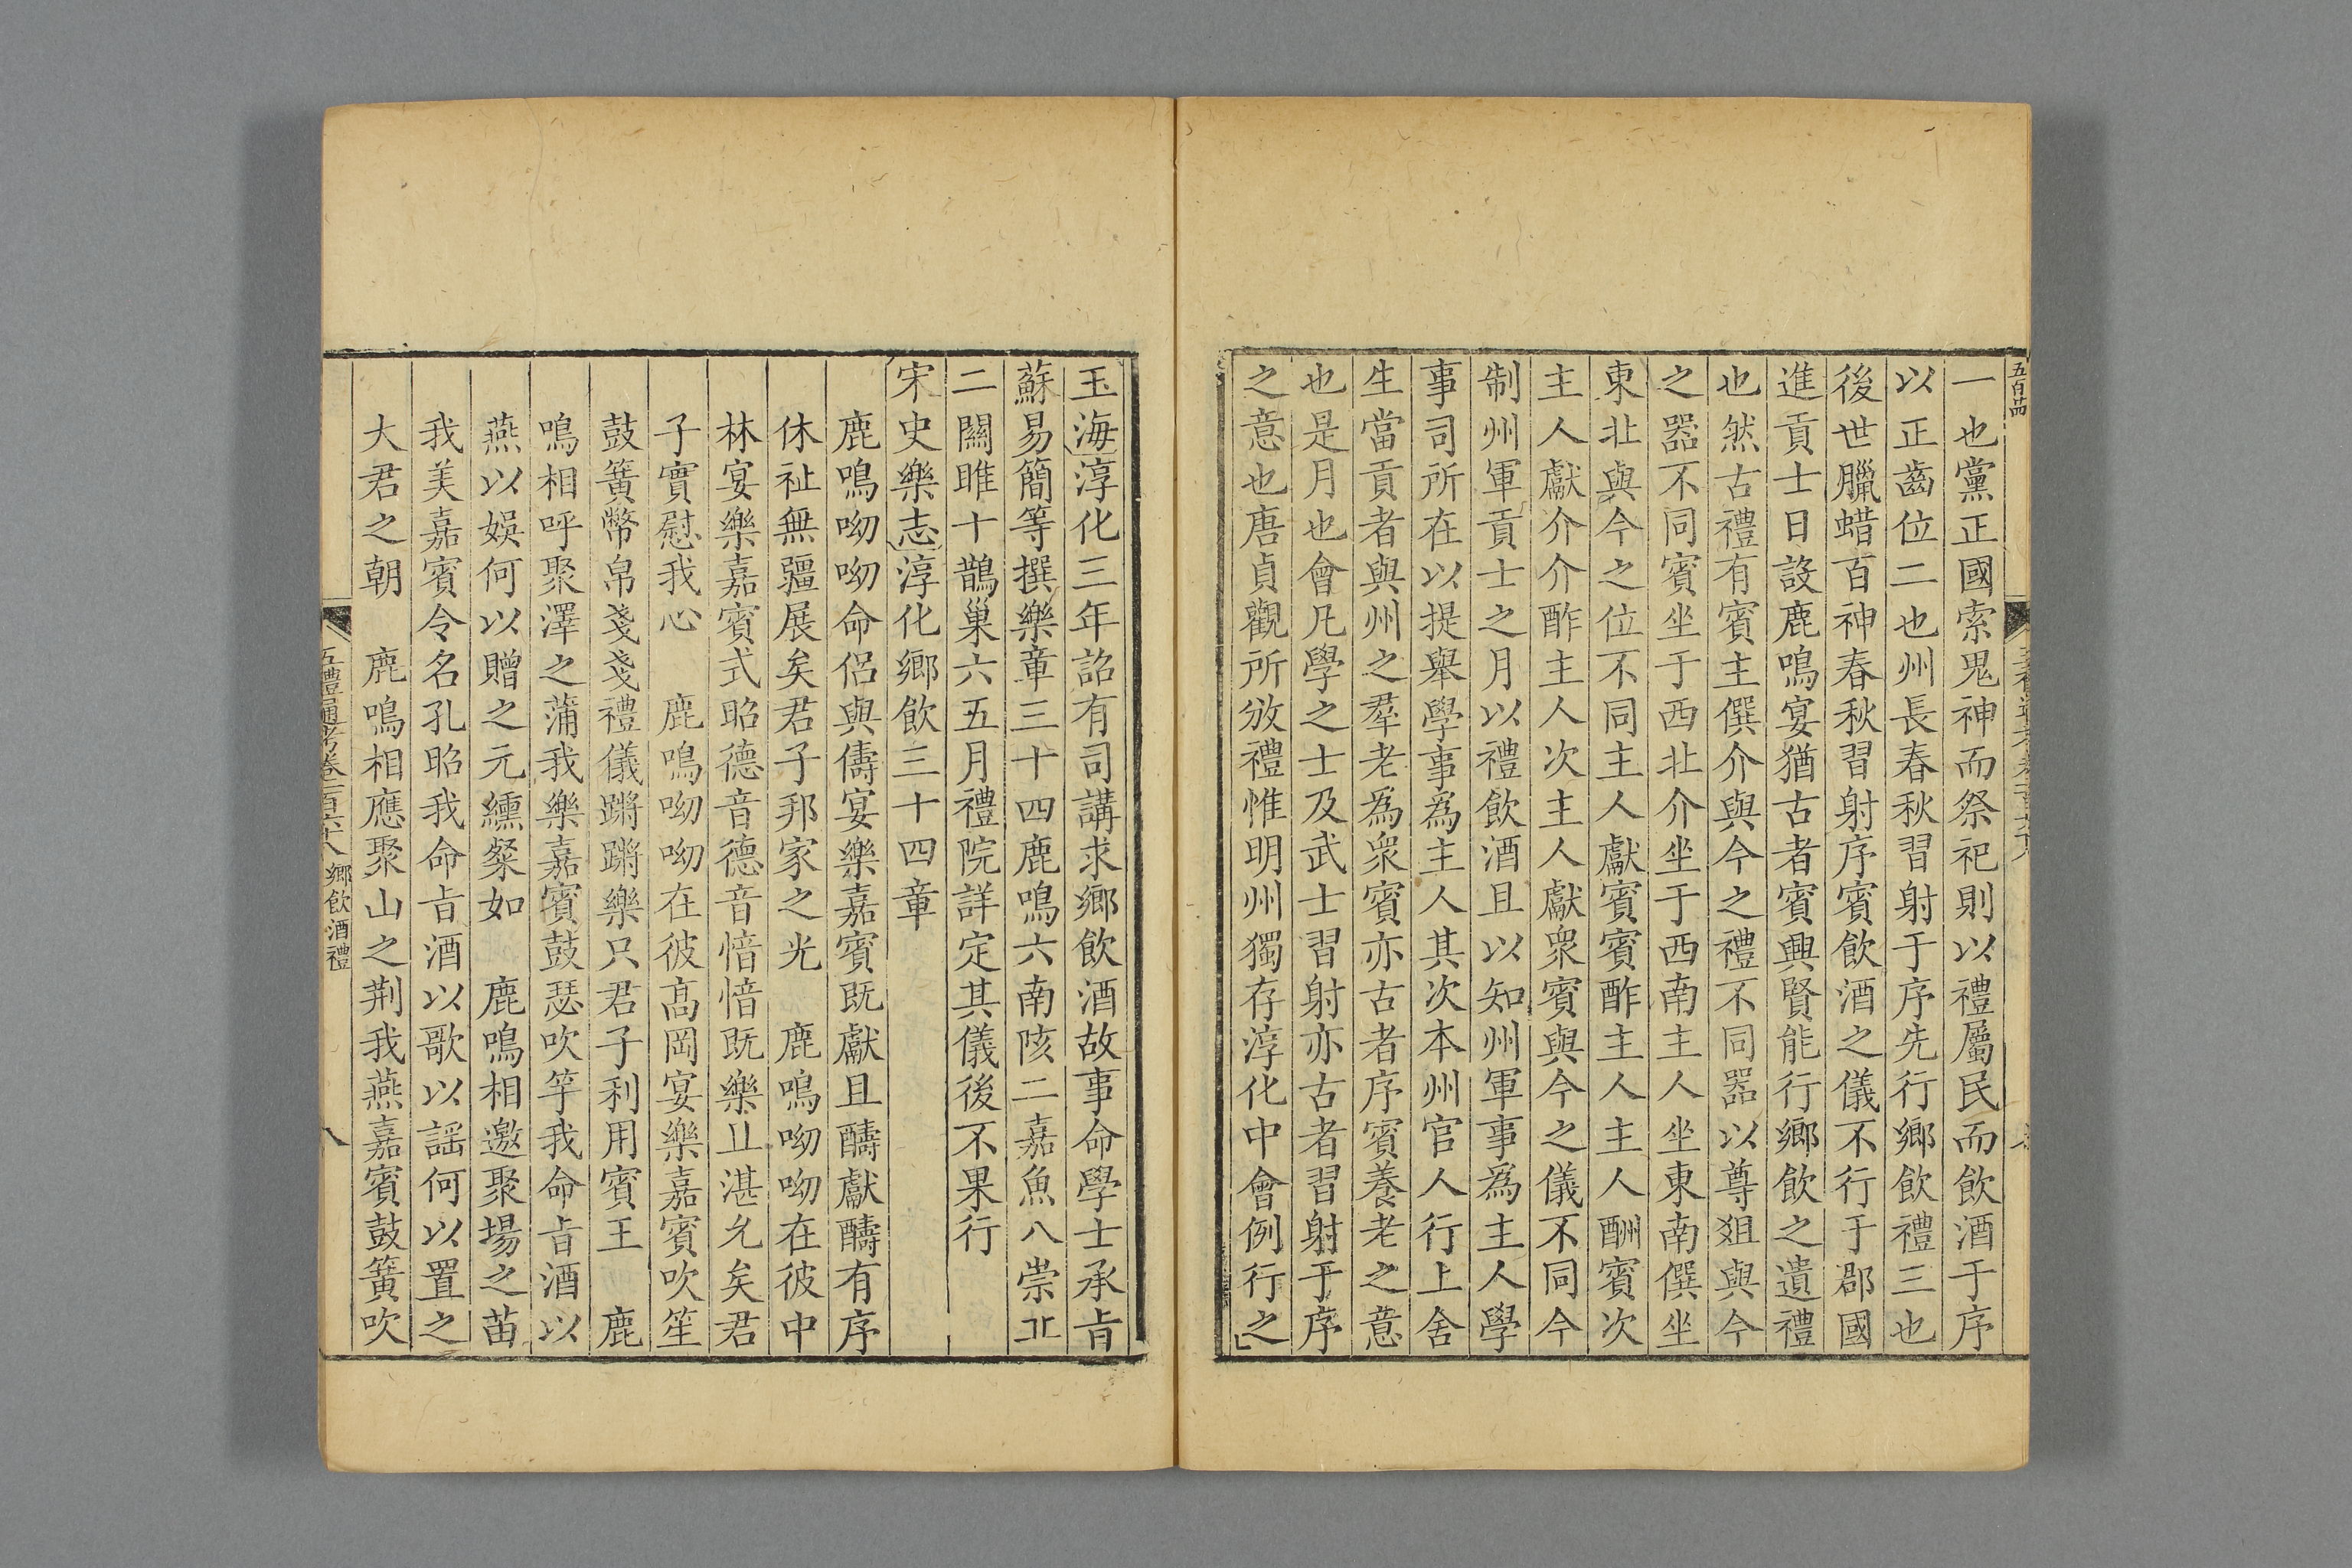 一也黨正國索鬼神而祭祀則以禮屬民而飲酒于序
以正齒位二也州長春秋習射于序先行鄉飲禮三也
後世臘蜡百神春秋習射序賓飲酒之儀不行于郡國
進貢士日設鹿鳴宴猶古者賓興賢能行鄉飲之遺禮
也然古禮有賓主僎介與今之禮不同器以尊俎與今
之器不同賓坐于西北介坐于西南主人坐東南僎坐
東北與今之位不同主人獻賓賓酢主人主人酬賓次
主人獻介介酢主人次主人獻衆賓與今之儀不同今
制州軍貢士之月以禮飲酒且以知州軍事爲主人學
事司所在以提舉學事爲主人其次本州官人行上舍
生當貢者與州之羣老爲衆賓亦古者序賓養老之意
也是月也會凡學之士及武士習射亦古者習射于序
之意也唐貞觀所放禮惟明州獨存淳化中會例行之
玉海淳化三年詔有司講求鄉飲酒故事命學士承旨
蘇易簡等撰樂章三十四鹿鳴六南陔二嘉魚八崇丘
二關雎十鵲巢六五月禮院詳定其儀後不果行
宋史樂志淳化鄉飲三十四章
鹿鳴呦呦命侶與儔宴樂嘉賓既獻且醻獻醻有序
休祉無疆展矣君子邦家之光 鹿鳴呦呦在彼中
林宴樂嘉賓式昭德音德音愔愔既樂且湛允矣君
子實慰我心 鹿鳴呦呦在彼高岡宴樂嘉賓吹笙
鼓簧幣帛戔戔禮儀蹡蹡樂只君子利用賓王 鹿
鳴相呼聚澤之蒲我樂嘉賓鼓瑟吹竽我命旨酒以
燕以娛何以贈之元纁粲如 鹿鳴相邀聚場之苗
我美嘉賓令名孔昭我命旨酒以歌以謠何以置之
大君之朝 鹿鳴相應聚山之荆我燕嘉賓鼓簧吹
五禮通考卷一百六十八 鄉飲酒禮 八